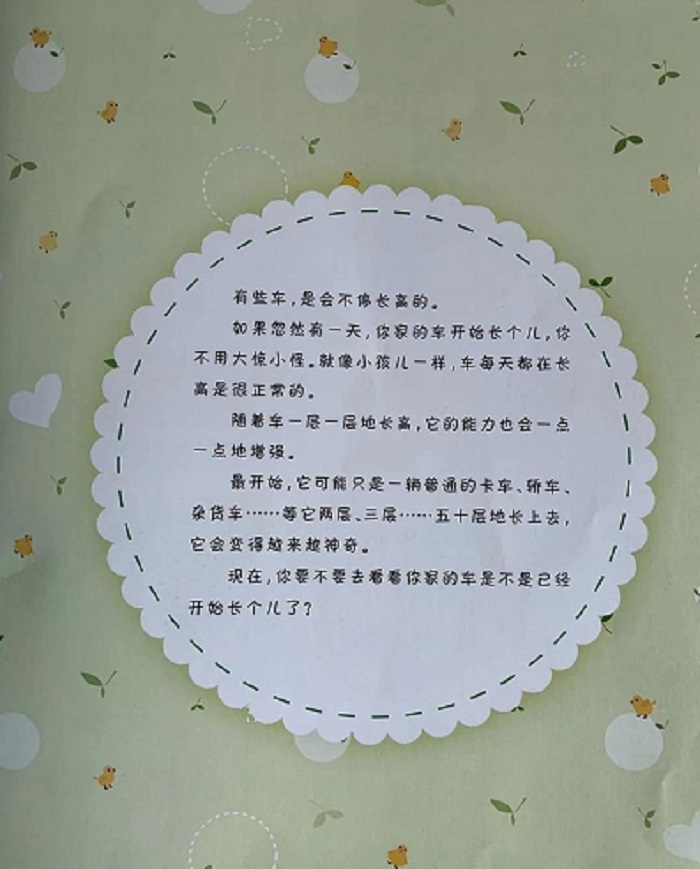 有些车,是会不停长高的。
如果忽然有一天,你家的车开始长个儿,你
不用大惊小怪。就像小孩儿一样,车每天都在长
高是很正常的。
随着车一层一层地长高,它的能力也会一点
一点地增强。
最开始,它可能只是一辆普通的卡车、轿车、
杂货车……等它两层、三层……五十层地长上去,
它会变得越来越神奇。
现在,你要不要去看看你家的车是不是已经
开始长个儿了?